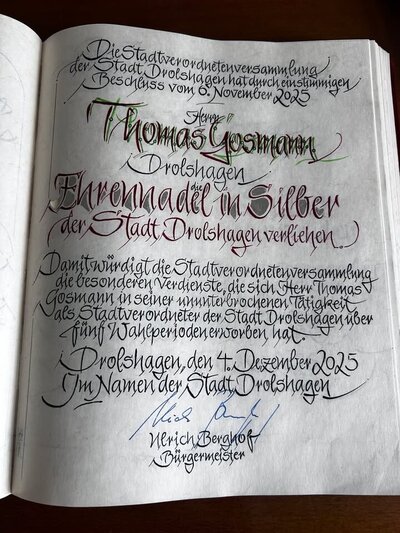 Die Stadtverordnetenversammlung
der Stadt Drolshagen hat durch einstimmigen
Beschluss vom 6. November 2025
Herrn
Thomas Gosmann
Drolshagen
die
Ehrennadel in Silber
der Stadt Drolshagen verliehen.
Damit würdigt die Stadtverordnetenversammlung
die besonderen Verdienste, die sich Herr Thomas
Gosmann in seiner ununterbrochenen Tätigkeit
als Stadtverordneter der Stadt Drolshagen über
fünf Wahlperioden erworben hat.
Drolshagen, den 4. Dezember 2025
Im Namen der Stadt Drolshagen
Ulrich Berghof
Bürgermeister